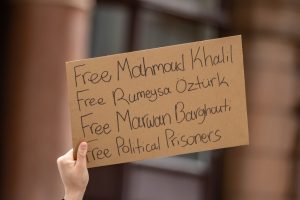 Free Mahmoud Khalil
Free Rumeysa Öztürk
Free Marwan Barghouti
Free Political Prisoners